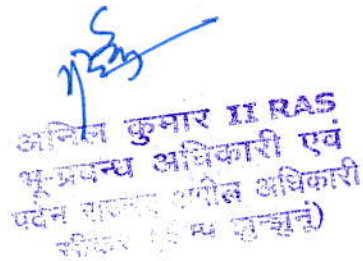 अनिल कुमार II RAS
भू-प्रबन्ध अधिकारी एवं
पदेन राजस्व अपील अधिकारी
सीकर झुन्झुनूं)